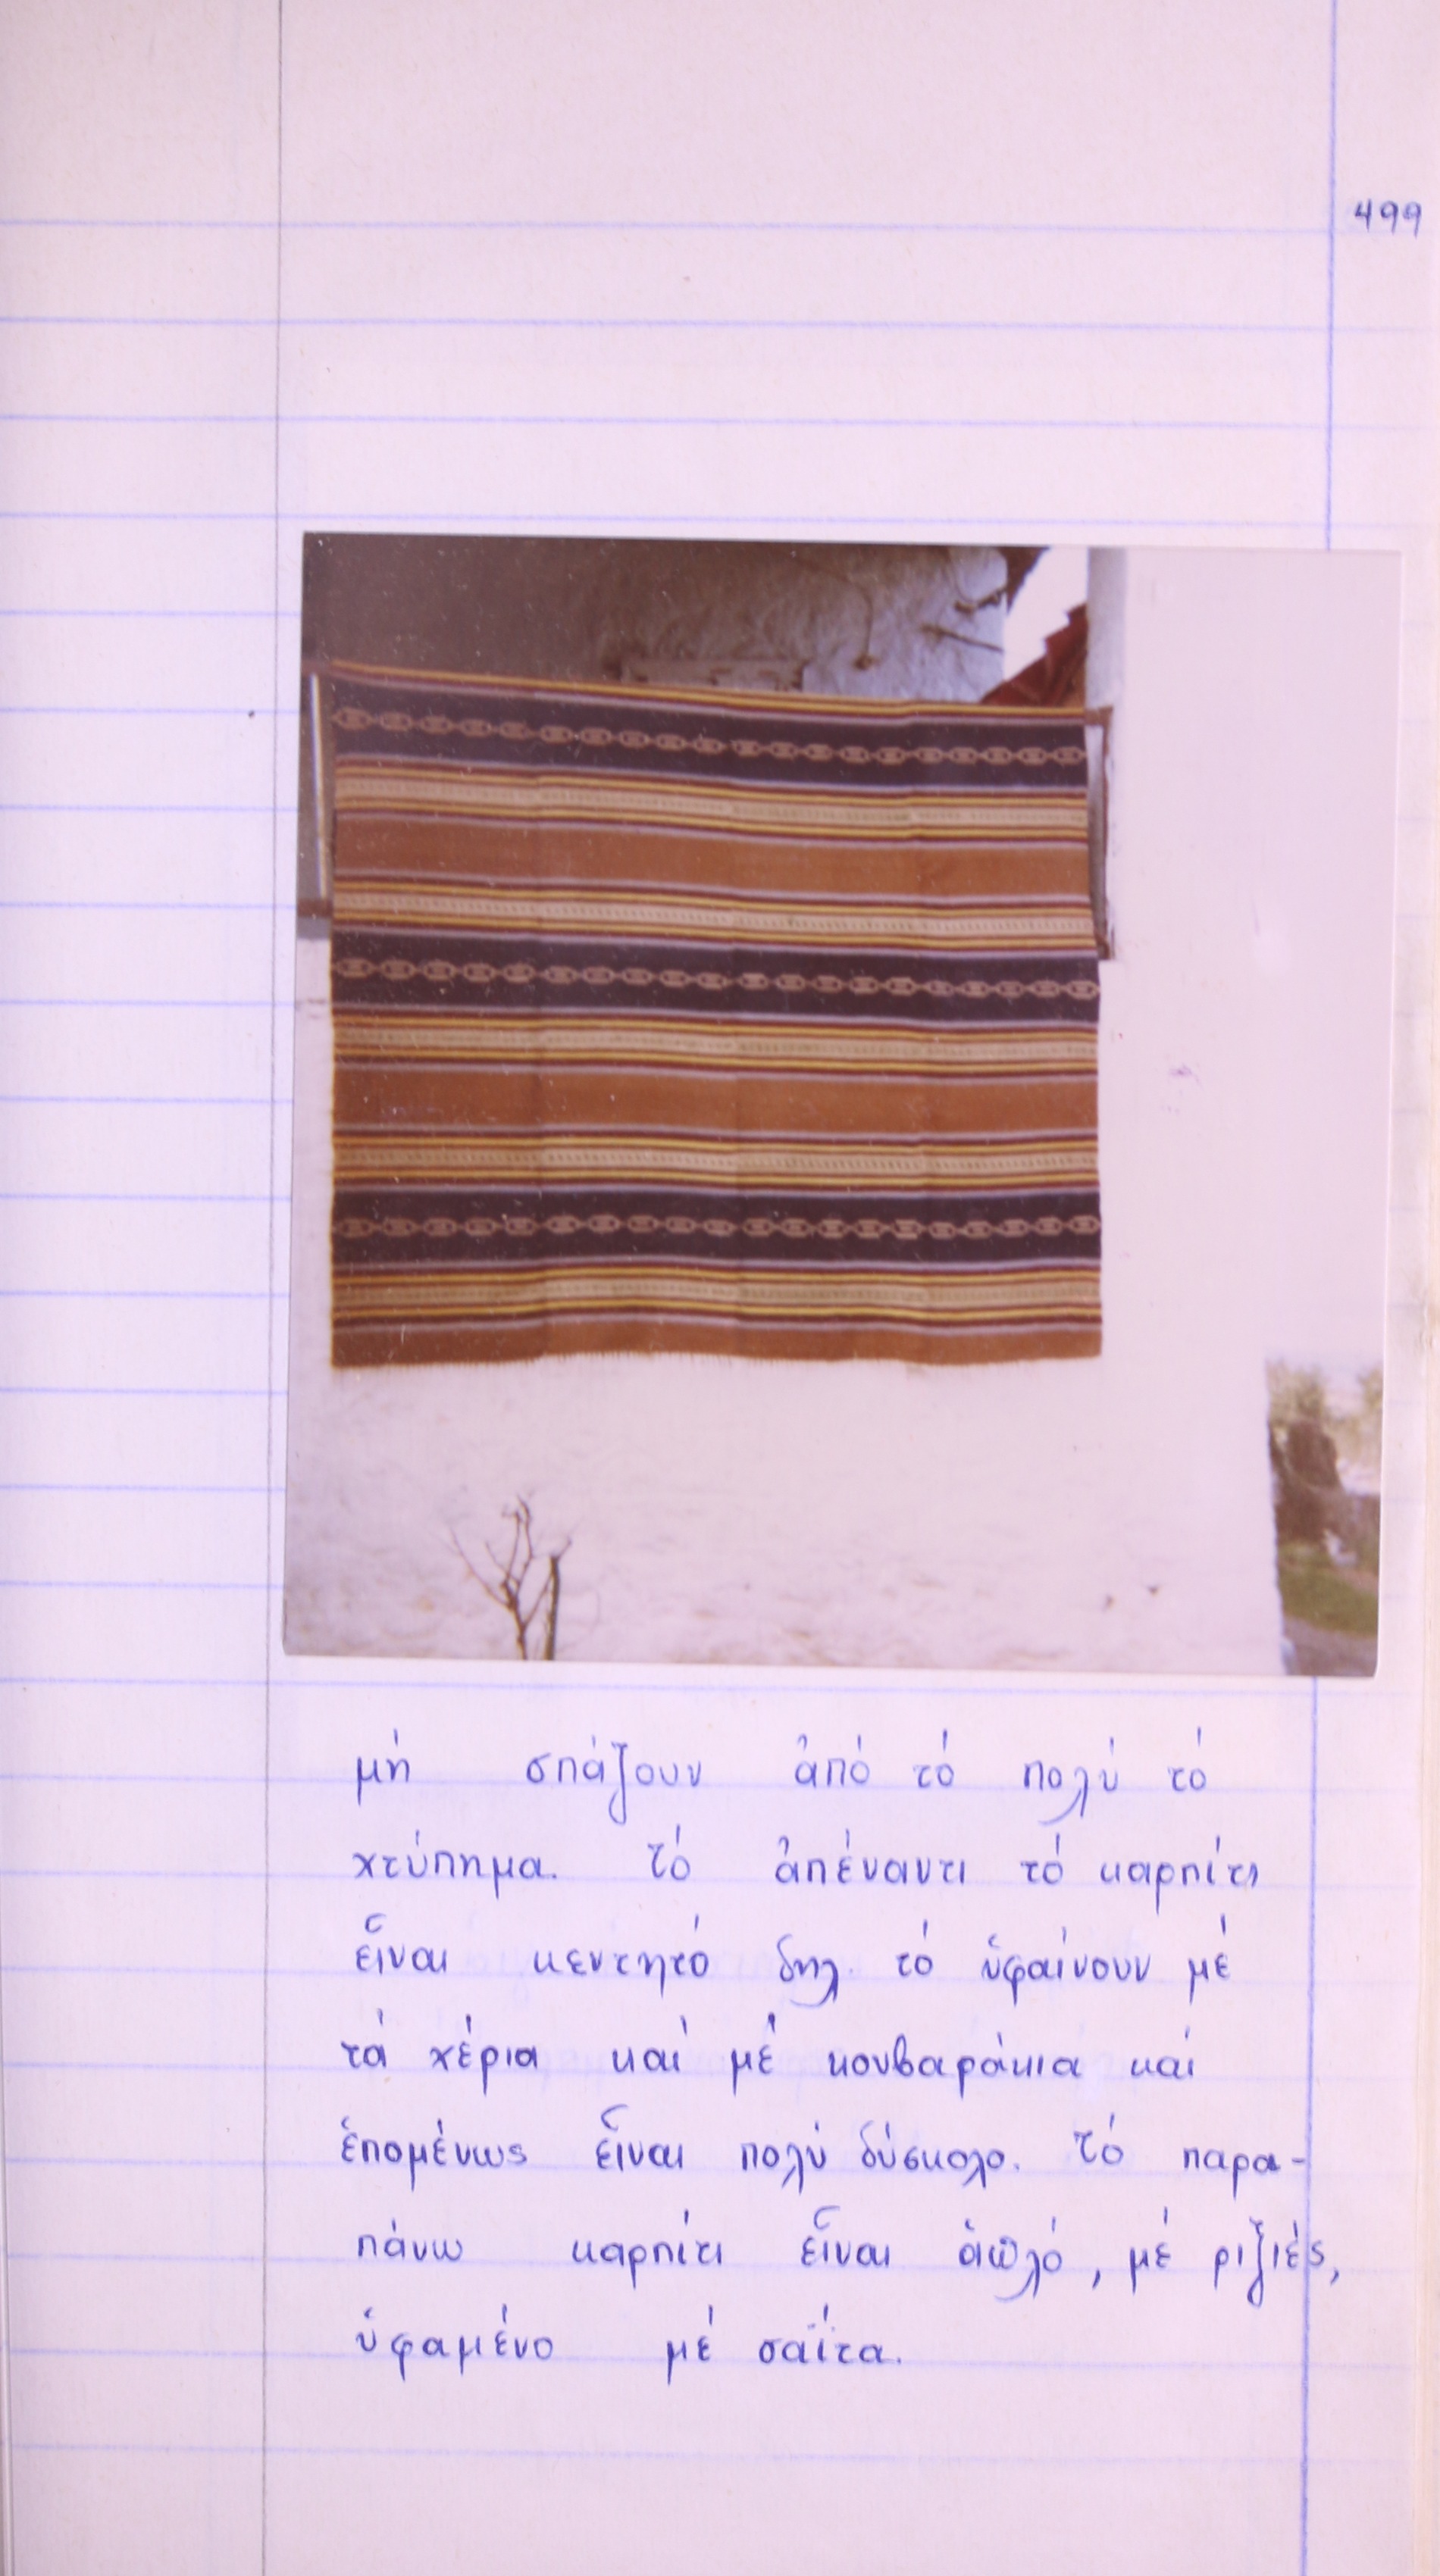 499
μή σπάζουν ἀπό τό πολύ τό
χτύπημα. Τό ἀπέναντι τό καρπίτι
εἶναι κεντητό δηλ. τό ὑφαίνουν μέ
τά χέρια καί μέ κουβαράκια καί
ἑπομένως εἶναι πολύ δύσκολο. Τό παρα-
πάνω καρπίτι εἶναι ἁπλό, μέ ριζιές,
ὑφαμένο μέ σαΐτα.